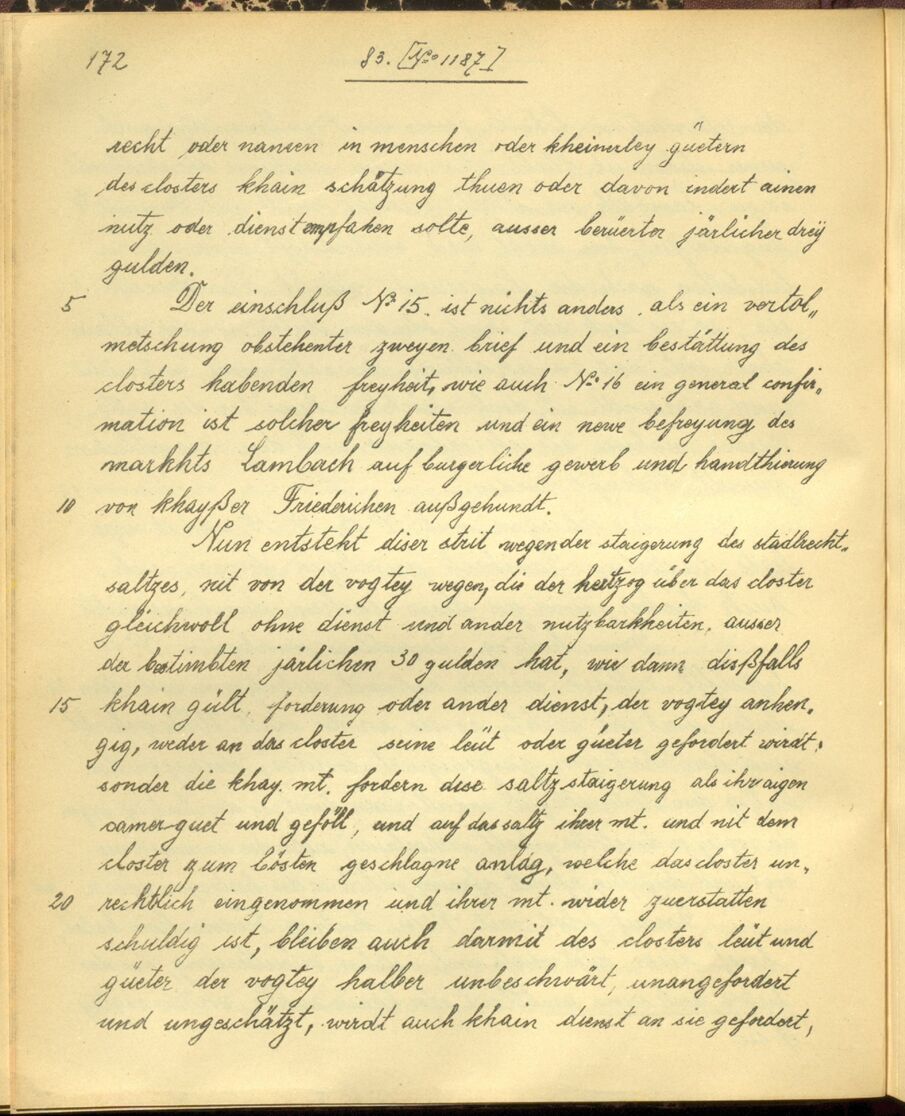 172 83. [No 1187]
recht oder nansen in menschen oder kheinerley güetern
des closters khain schätzung thuen oder davon indert ainen
nutz oder dienst empfahen solte, ausser berüerter järlicher drÿ
gulden.
5 Der einschluß No 15. ist nichts anders, als ein vertol„
metschung obstehenter zweyen brief und ein bestättung des
closters habenden freyheit, wie auch No 16 ein general confir„
mation ist solcher freyheiten und ein newe befreyung des
markhts Lambach auf burgerliche gewerb und handthierung
10 von khayßer Friederichen außgehundt.
Nun entsteht diser strit wegen der staigerung des stadlrecht„
saltzes, nit von der vogtey wegen, die der hertzog über das closter
gleichwoll ohne dienst und ander nutzbarkheiten, ausser
der bestimbten järlichen 30 gulden hat, wie dann dißfalls
15 khain gült, forderung oder ander dienst, der vogtey anhen„
gig, weder an das closter seine leüt oder güeter gefordert wirdt,
sonder die khay. mt. fordern dise saltz staigerung als ihr aigen
camer guet und geföll, und auf das saltz ihrer mt. und nit dem
closter zum bösten geschlagne anlag, welche das closter un„
20 rechtlich eingenommen und ihrer mt. wider zuerstatten
schuldig ist, bleiben auch darmit des closters leüt und
güeter der vogtey halber unbeschwärt, unangefordert
und ungeschätzt, wirdt auch khain dienst an sie gefordert,